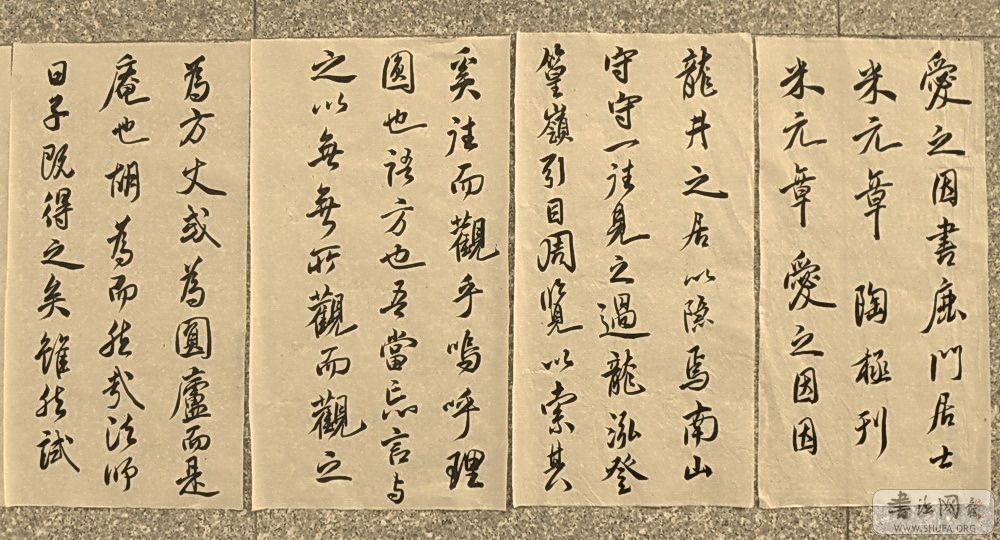 愛之因書鹿門居士
米元章 陶極刊
米元章 愛之因因
龍井之居以隐焉南山
守守一往見之過龍泓登
篁嶺引目周覽以索其
奚往而觀乎嗚呼理
圓也語方也吾當忘言与
之以無無所觀而觀之
為方丈或為圓廬而是
庵也胡為而然哉法師
曰子既得之矣雖然試
书法网
WWW.SHUFA.ORG